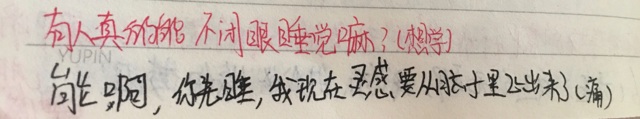 有人真的能不闭眼睡觉嘛？(想学)
YUPIN
能啊，你先睡，我现在灵感要从脑子里飞出来了(痛)